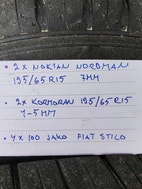 • 2x NOKIAN NORDMAN
195/65 R15 7MM
• 2x KORMORAN 195/65 R15
4-5MM
• 4x100 JAKO FIAT STILO